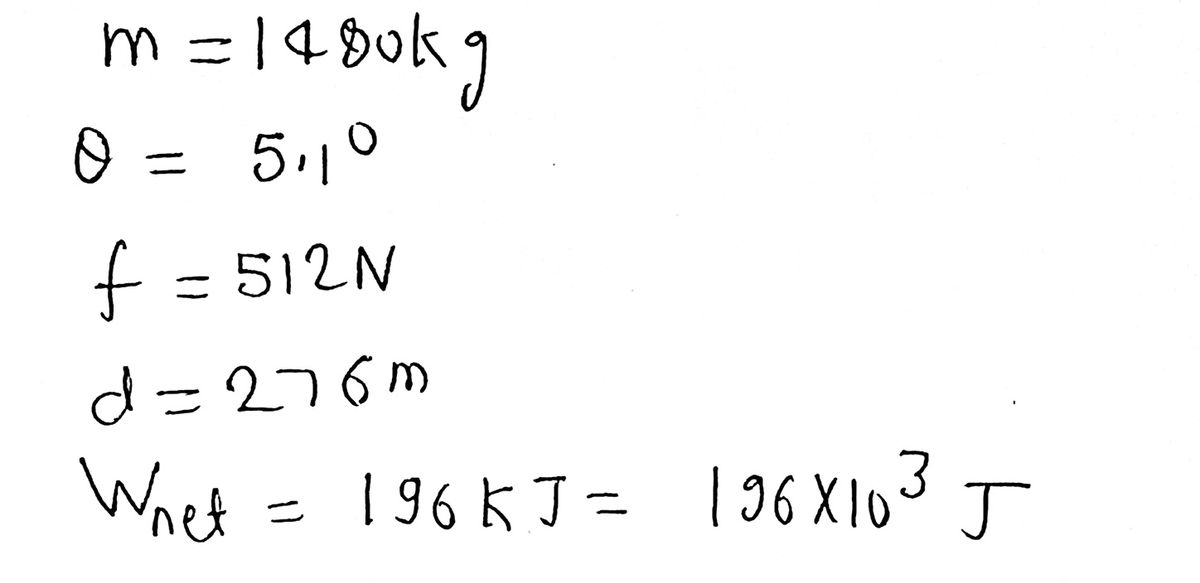 m = 1480kg
θ = 5.1°
f = 512N
d = 276m
Wnet = 196KJ = 196X10³ J